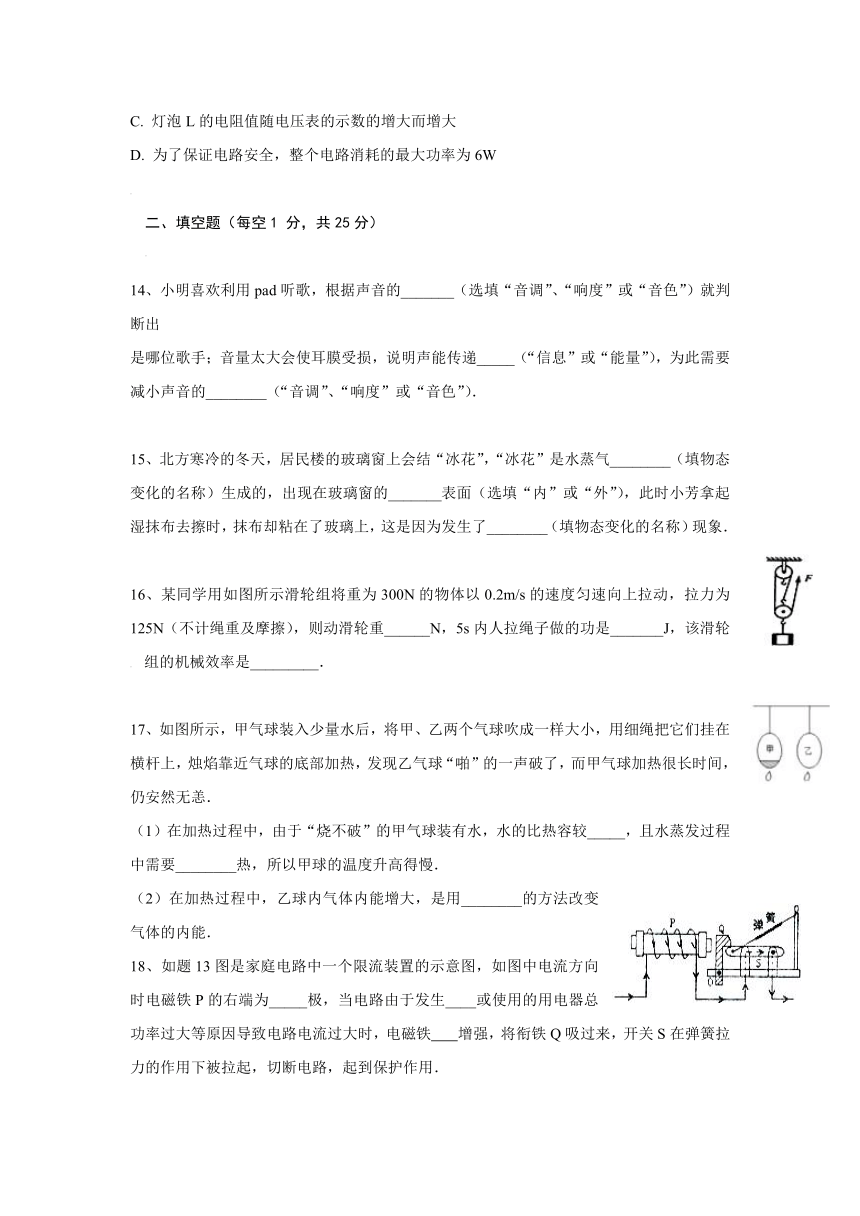 C. 灯泡 L 的电阻值随电压表的示数的增大而增大
D. 为了保证电路安全，整个电路消耗的最大功率为 6W
二、填空题（每空 1 分，共 25 分）
14、小明喜欢利用 pad 听歌，根据声音的_______（选填“音调”、“响度”或“音色”）就判
断出
是哪位歌手；音量太大会使耳膜受损，说明声能传递_____（“信息”或“能量”），为此需要
减小声音的________（“音调”、“响度”或“音色”）．
15、北方寒冷的冬天，居民楼的玻璃窗上会结“冰花”，“冰花”是水蒸气________（填物态
变化的名称）生成的，出现在玻璃窗的_______表面（选填“内”或“外”），此时小芳拿起
湿抹布去擦时，抹布却粘在了玻璃上，这是因为发生了________（填物态变化的名称）现象．
16、某同学用如图所示滑轮组将重为 300N 的物体以 0.2m/s 的速度匀速向上拉动，拉力为
125N（不计绳重及摩擦），则动滑轮重______N，5s 内人拉绳子做的功是_______J，该滑轮
组的机械效率是_________．
F
17、如图所示，甲气球装入少量水后，将甲、乙两个气球吹成一样大小，用细绳把它们挂在
横杆上，烛焰靠近气球的底部加热，发现乙气球“啪”的一声破了，而甲气球加热很长时间，
仍安然无恙．
甲 乙
（1）在加热过程中，由于“烧不破”的甲气球装有水，水的比热容较_____，且水蒸发过程
中需要________热，所以甲球的温度升高得慢．
（2）在加热过程中，乙球内气体内能增大，是用________的方法改变
气体的内能．
P Q 弹簧 S O
18、如题 13 图是家庭电路中一个限流装置的示意图，如图中电流方向
时电磁铁 P 的右端为_____极，当电路由于发生____或使用的用电器总
功率过大等原因导致电路电流过大时，电磁铁___增强，将衔铁 Q 吸过来，开关 S 在弹簧拉
力的作用下被拉起，切断电路，起到保护作用．